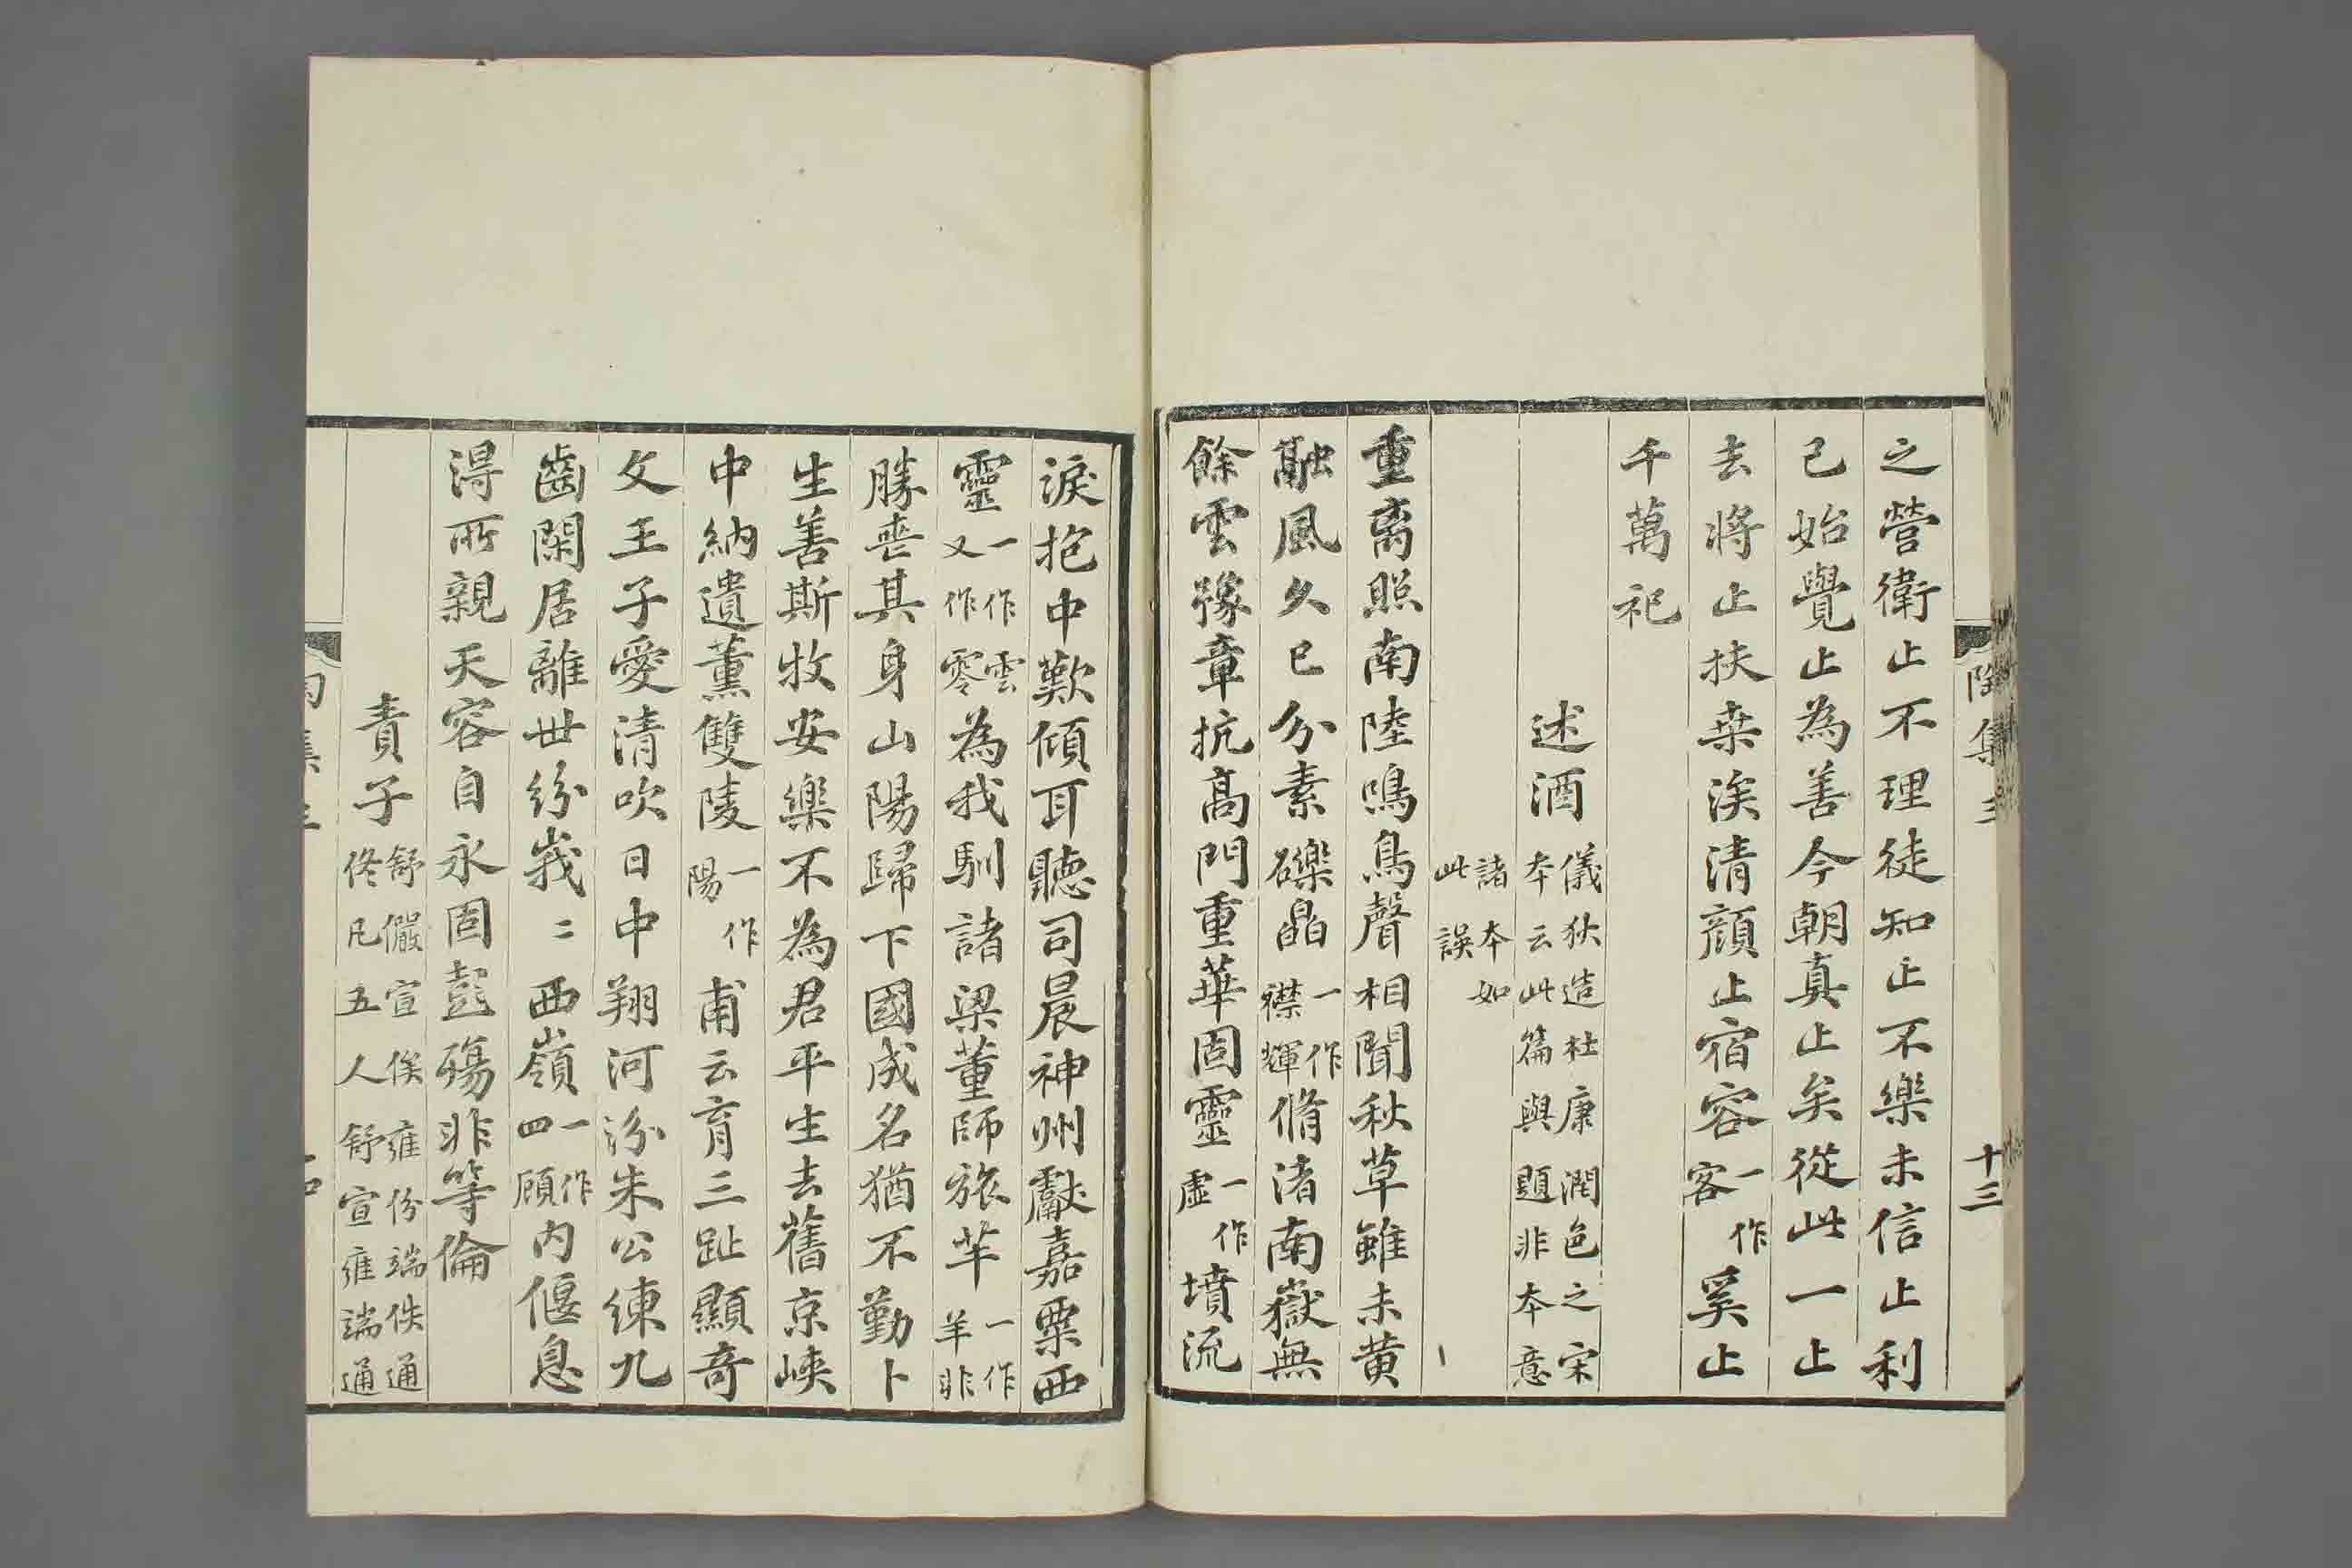 陶集三 十三
之營衛止不理徒知止不樂未信止利
己始覺止為善今朝真止矣從此一止
去將止扶桑涘清顏止宿容一作客奚止
千萬祀
述酒儀狄造杜康潤色之宋本云此篇與題非本意
諸本如此誤
重离照南陸鳴鳥聲相聞秋草雖未黄
融風久已分素礫皛一作襟輝脩渚南嶽無
餘雲豫章抗高門重華固靈一作虛墳流
淚抱中歎傾耳聽司晨神州獻嘉粟西
靈一作雲又作零為我馴諸梁董師旅芈一作羊非
勝丧其身山陽歸下國成名猶不勤卜
生善斯牧安樂不為君平生去舊京峽
中納遺薰雙陵一作陽甫云育三趾顯奇
文王子愛清吹日中翔河汾朱公練九
齒閑居離世紛峩〻西嶺一作四顧内偃息
得所親天容自永固彭殤非等倫
責子舒儼宣俟雍份端佚通佟凡五人舒宣雍端通